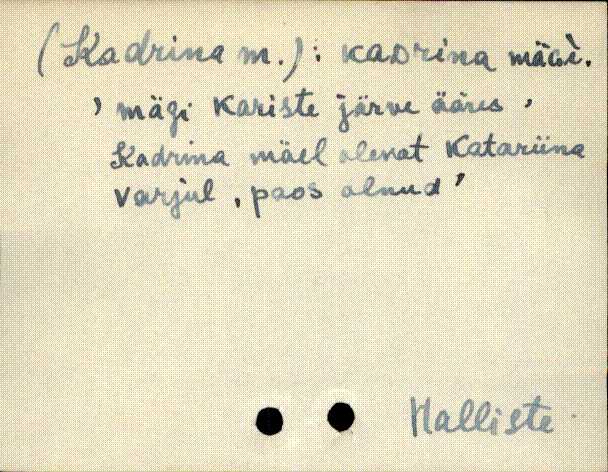 (Kadrina m.): kaDrina mäGi.
' mägi Kariste järve ääres '
Kadrina mäel olevat Katariina
varjul, paos olnud '
Halliste